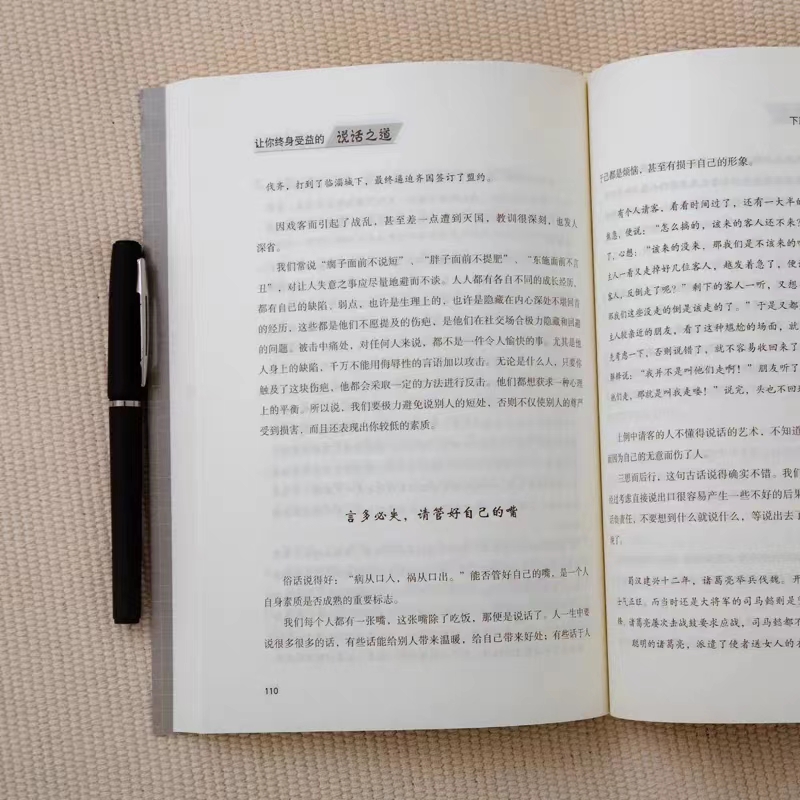 让你终身受益的 说话之道
伐齐，打到了临淄城下，最终逼迫齐国签订了盟约。
因戏客而引起了战乱，甚至差一点遭到灭国，教训很深刻，也发人
深省。
我们常说“瘸子面前不说短”、“胖子面前不提肥”、“东施面前不言
丑”，对让人失意之事应尽量地避而不谈。人人都有各自不同的成长经历，
都有自己的缺陷、弱点，也许是生理上的，也许是隐藏在内心深处不堪回首
的经历，这些都是他们不愿提及的伤疤，是他们在社交场合极力隐藏和回避
的问题。被击中痛处，对任何人来说，都不是一件令人愉快的事。尤其是他
人身上的缺陷，千万不能用侮辱性的言语加以攻击。无论是什么人，只要你
触及了这块伤疤，他都会采取一定的方法进行反击。他们都想获求一种心理
上的平衡。所以说，我们要极力避免说别人的短处，否则不仅使别人的尊严
受到损害，而且还表现出你较低的素质。
言多必失，请管好自己的嘴
俗话说得好：“病从口入，祸从口出。”能否管好自己的嘴，是一个人
自身素质是否成熟的重要标志。
我们每个人都有一张嘴，这张嘴除了吃饭，那便是说话了。人一生中要
说很多很多的话，有些话能给别人带来温暖，给自己带来好处；有些话于人
110
下
于己都是烦恼，甚至有损于自己的形象。
有个人请客，看看时间过了，还有一大半的
焦急，便说：“怎么搞的，该来的客人还不来？
了，心想：“该来的没来，那我们是不该来的
主人一看又走掉好几位客人，越发着急了，便说
客人，反倒走了呢？”剩下的客人一听，又想
那我们这些没走的倒是该走的了。”于是又都
主人较亲近的朋友，看了这种尴尬的场面，就
先考虑一下，否则说错了，就不容易收回来了
释格说：“我并不是叫他们走啊！”朋友听了
他们走，那就是叫我走喽！”说完，头也不回
上例中请客的人不懂得说话的艺术，不知道
而因为自己的无意而伤了人。
三思而后行，这句古话说得确实不错。我们
经过考虑直接说出口很容易产生一些不好的后果
话负责任，不要想到什么就说什么，等说出去了
晚了。
蜀汉建兴十二年，诸葛亮举兵伐魏。
士气正旺。而当时还是大将军的司马懿则是
候。诸葛亮屡次击战鼓要求应战，司马懿都不
聪明的诸葛亮，派遣了使者送女人的